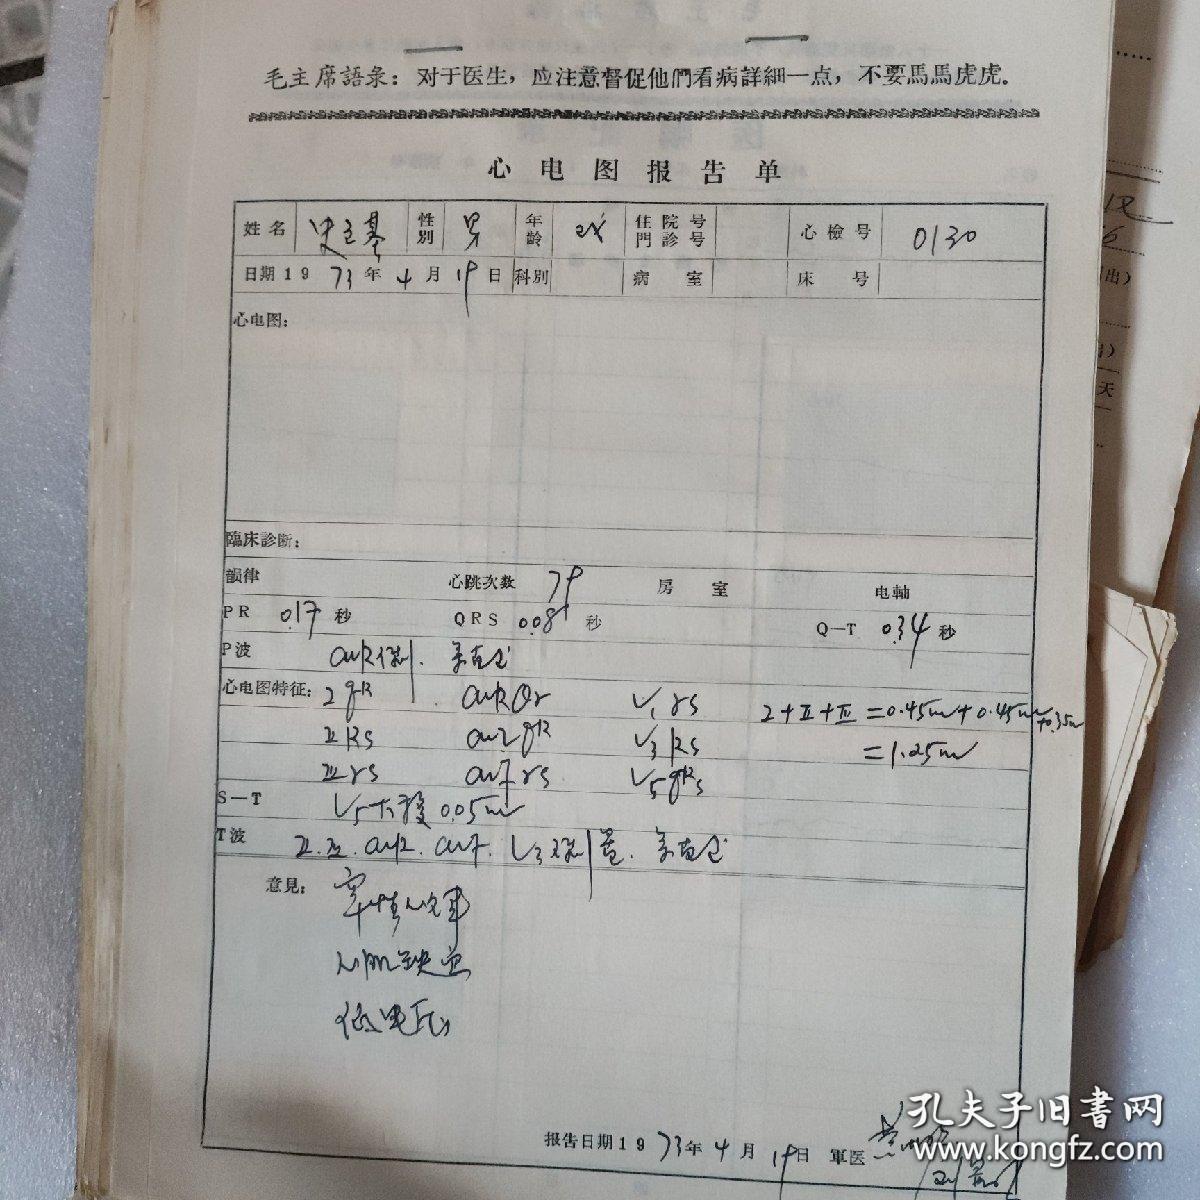 毛主席語录：对于医生，应注意督促他們看病詳細一点，不要馬馬虎虎.
心电图报告单
姓名 性別 男 年龄 住院号 門診号 心檢号 0130
日期19 73 年 4 月 19 日 科別 病室 床号
心电图：
臨床診断：
韻律 心跳次数 79 房室 电軸
PR 0.17 秒 QRS 0.08 秒 Q—T 0.34 秒
P波
心电图特征：I qR avR Qr V1 rs I+II+III=0.45mv+0.45mv+0.35mv
II Rs avL qR V3 Rs =1.25mv
III rs avF rs V5 qRs
S—T V5 下移 0.05mv
T波 II. III. avR. avF. V3
意見： 窦性心律
心肌缺血
低电压
报告日期19 73 年 4 月 19 日 軍医
孔夫子旧书网
www.kongfz.com